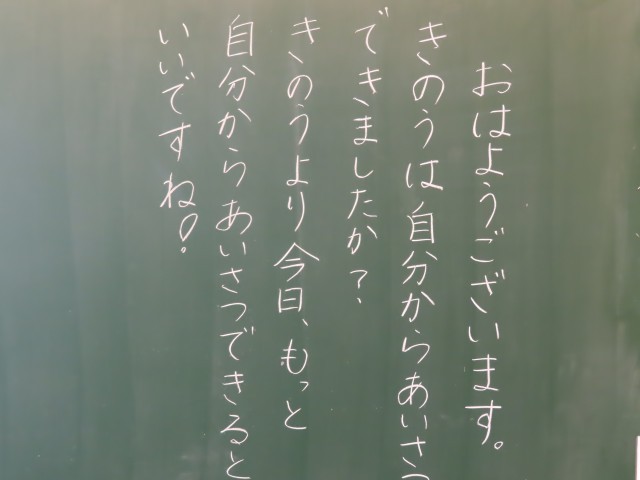 おはようございます。
きのうは自分からあいさつ
できましたか?
きのうより今日、もっと
自分からあいさつできると
いいですね!